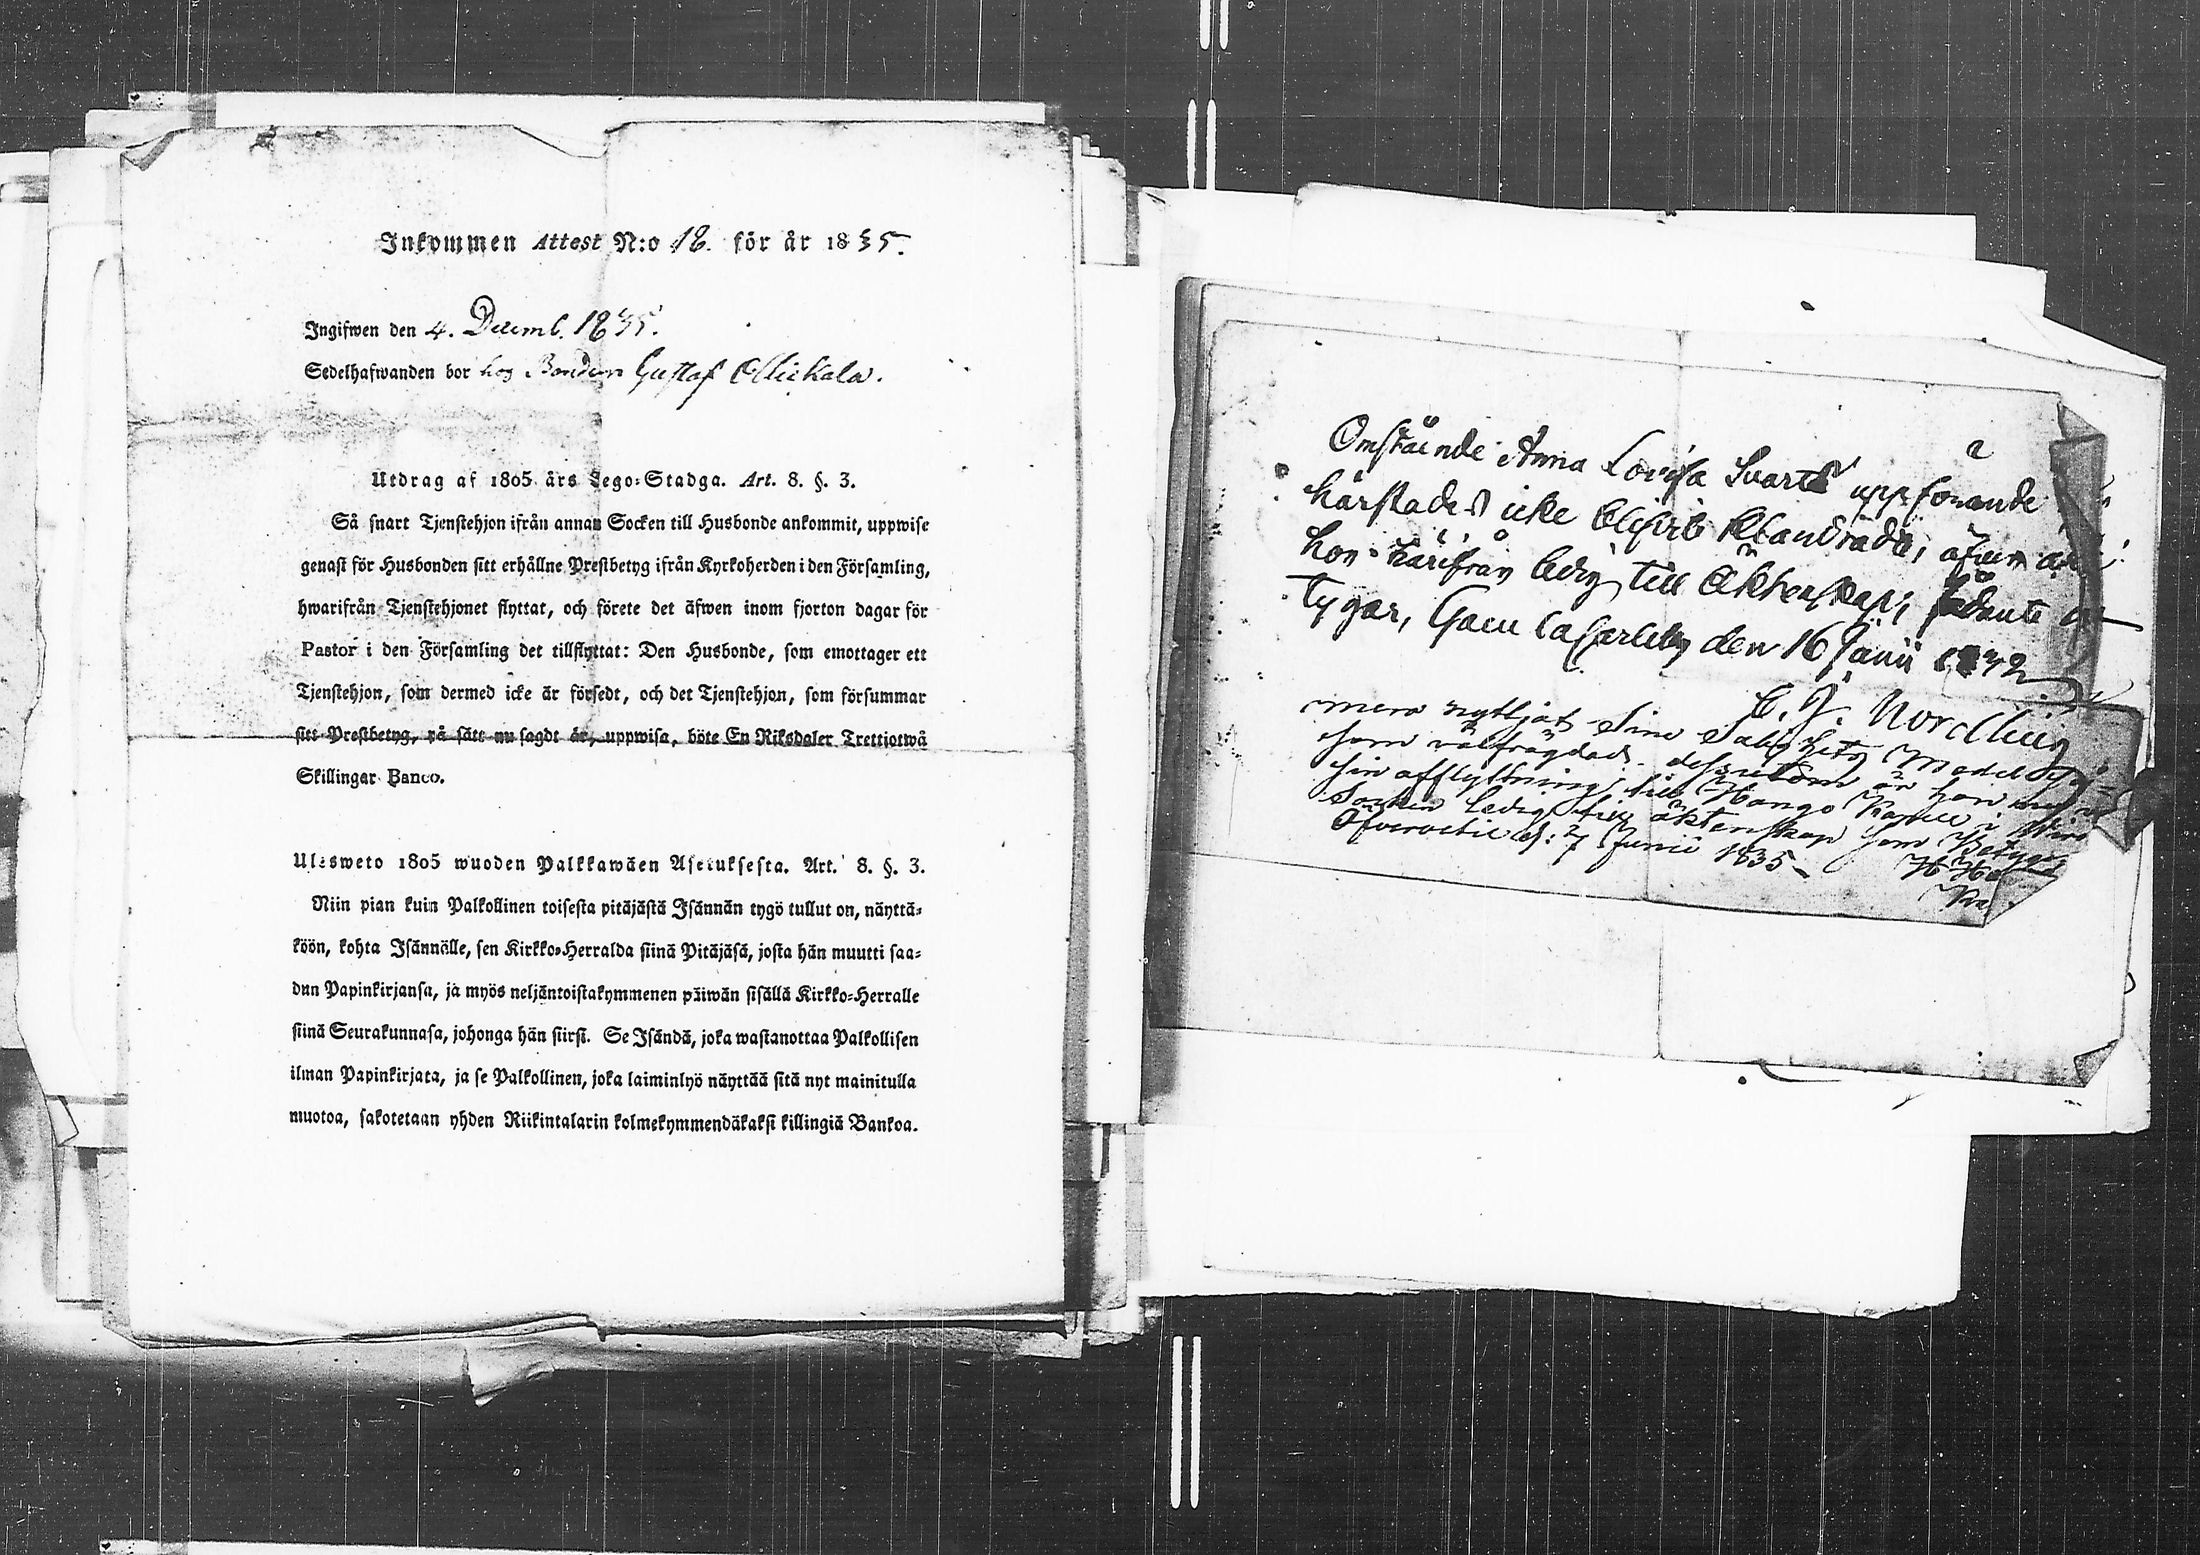 Inkommen Attest N:o 18. för år 1835.
Ingifwen den 4. Decemb. 1835.
Sedelhafwanden bor hos Bonden Gustaf
Utdrag af 1805 års Lego-Stadga. Art. 8. §. 3.
Så snart Tjenstehjon ifrån annan Socken till Husbonde ankommit, uppwise
genast för Husbonden sitt erhållne Prestbetyg ifrån Kyrkoherden i den Församling,
hwarifrån Tjenstehjonet flyttat, och förete det äfwen inom fjorton dagar för
Pastor i den Församling det tillflyttat: Den Husbonde, som emottager ett
Tjenstehjon, som dermed icke är försedt, och det Tjenstehjon, som försummar
sitt Prestbetyg, på sätt nu sagdt är, uppwisa, böte En Riksdaler Trettiotwå
Skillingar Banco.
Ulosweto 1805 wuoden Palkkawäen Asetuksesta. Art. 8. §. 3.
Niin pian kuin Palkollinen toisesta pitäjästä Isännän tygö tullut on, näyttä-
köön, kohta Isännälle, sen Kirkko-Herralda siinä Pitäjäsä, josta hän muutti saa-
dun Papinkirjansa, ja myös neljäntoistakymmenen päiwän sisällä Kirkko-Herralle
siinä Seurakunnasa, johonga hän siirsi. Se Isändä, joka wastanottaa Palkollisen
ilman Papinkirjata, ja se Palkollinen, joka laiminlyö näyttää sitä nyt mainitulla
muotoa, sakotetaan yhden Riikintalarin kolmekymmendäkaksi killingiä Bankoa.
Omstående Anna Lovisa uppförande
härstädes icke blifvit klandradt, äfven
hon härifrån ledig till Äktenskap, sådant
tygar, Gamlacarleby den 16 Junii 1832
C. J. Nordling
mera nyttjat sine Salighets Medel
som välfrägdad. dessutom är hon
sin afflyttning till Kapell i
Socken ledig till äktenskap som Betygar
d: 7 Junii 1835